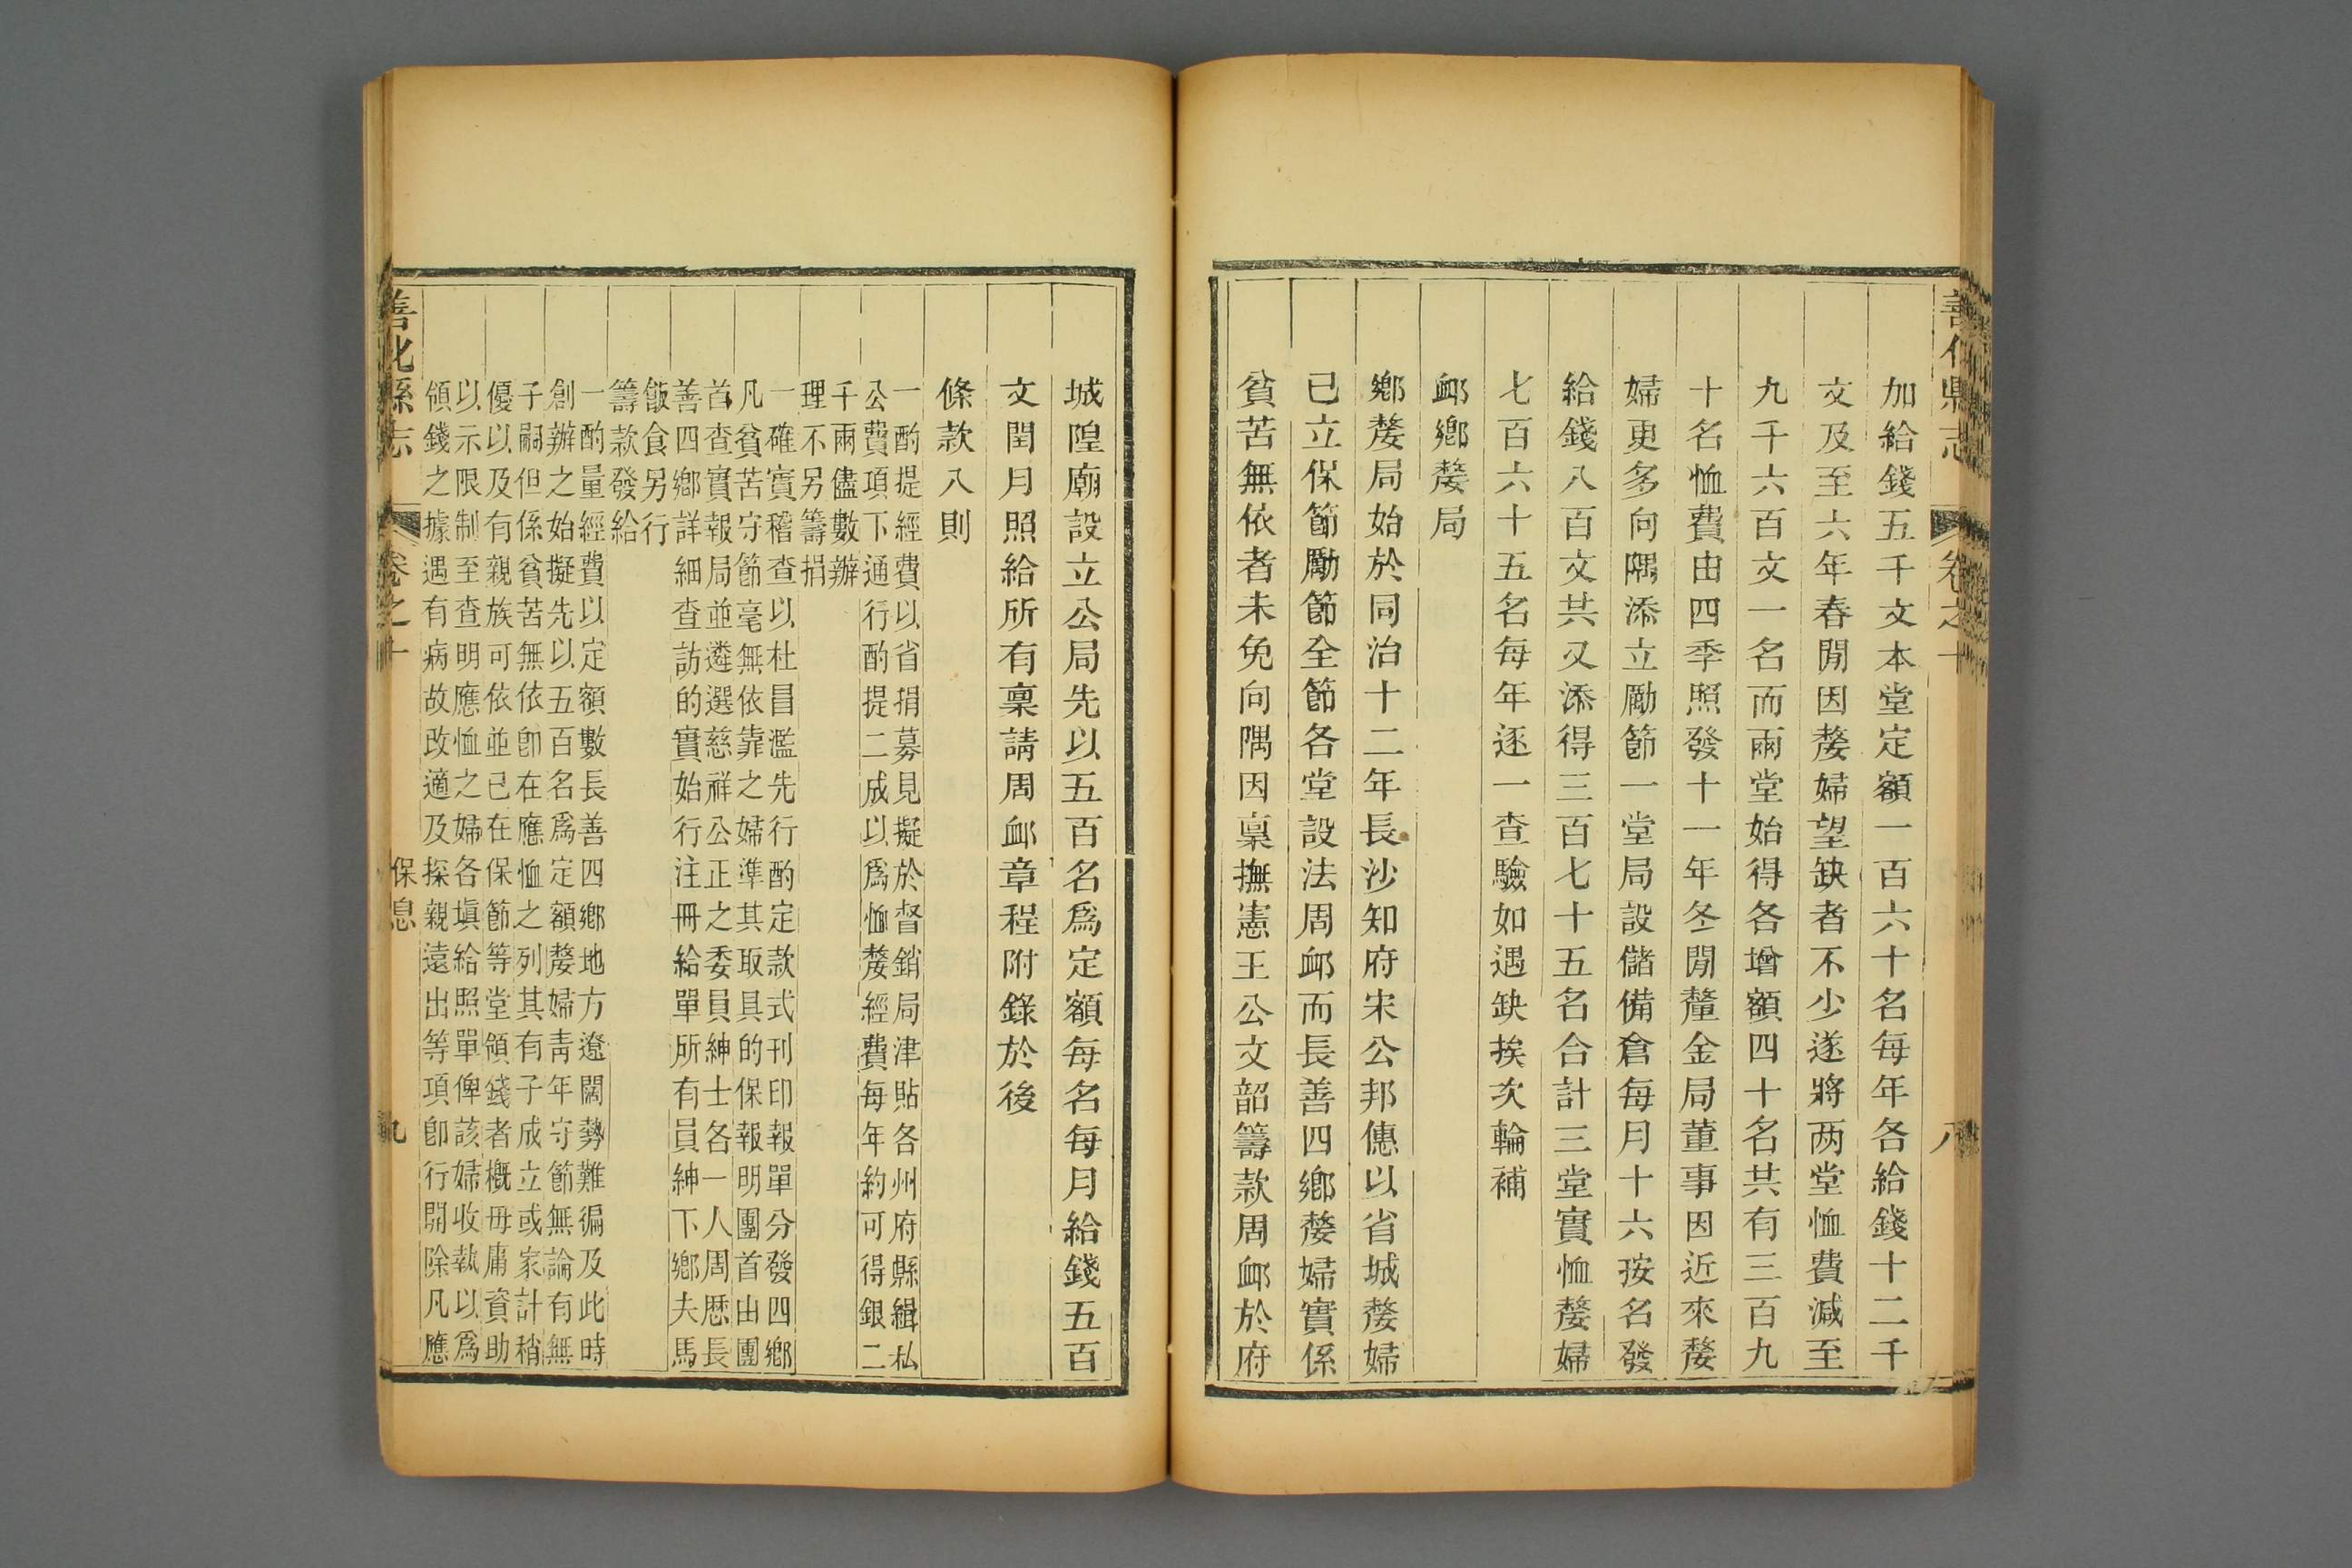 善化縣志
卷之十
八
加給錢五千文本堂定額一百六十名每年各給錢十二千
文及至六年春閒因嫠婦望缺者不少遂將两堂恤費減至
九千六百文一名而兩堂始得各增額四十名共有三百九
十名恤費由四季照發十一年冬閒釐金局董事因近來嫠
婦更多向隅添立勵節一堂局設儲備倉每月十六按名發
給錢八百文共又添得三百七十五名合計三堂實恤嫠婦
七百六十五名每年逐一查驗如遇缺挨次輪補
卹鄉嫠局
鄉嫠局始於同治十二年長沙知府宋公邦僡以省城嫠婦
已立保節勵節全節各堂設法周卹而長善四鄉嫠婦實係
貧苦無依者未免向隅因稟撫憲王公文韶籌款周卹於府
城隍廟設立公局先以五百名爲定額每名每月給錢五百
文閏月照給所有稟請周卹章程附錄於後
條款八則
一酌提經費以省捐募見擬於督銷局津貼各州府縣緝私
公費項下通行酌提二成以爲恤嫠經費每年約可得銀二
千兩儘數辦
理不另籌捐
一確實稽查以杜冒濫先行酌定款式刊印報單分發四鄉
凡貧苦守節毫無依靠之婦準其取具的保報明團首由團
首查實報局並遴選慈祥公正之委員紳士各一人周歷長
善四鄉詳細查訪的實始行注冊給單所有員紳下鄉夫馬
飯食另行
籌款發給
一酌量經費以定額數長善四鄉地方遼闊勢難徧及此時
創辦之始擬先以五百名爲定額嫠婦靑年守節無論有無
子嗣但係貧苦無依卽在應恤之列其有子成立或家計稍
優以及有親族可依並已在保節等堂領錢者槪毋庸資助
以示限制至查明應恤之婦各塡給照單俾該婦收執以爲
領錢之據遇有病故改適及探親遠出等項卽行開除凡應
善化縣志
卷之十
保息
九